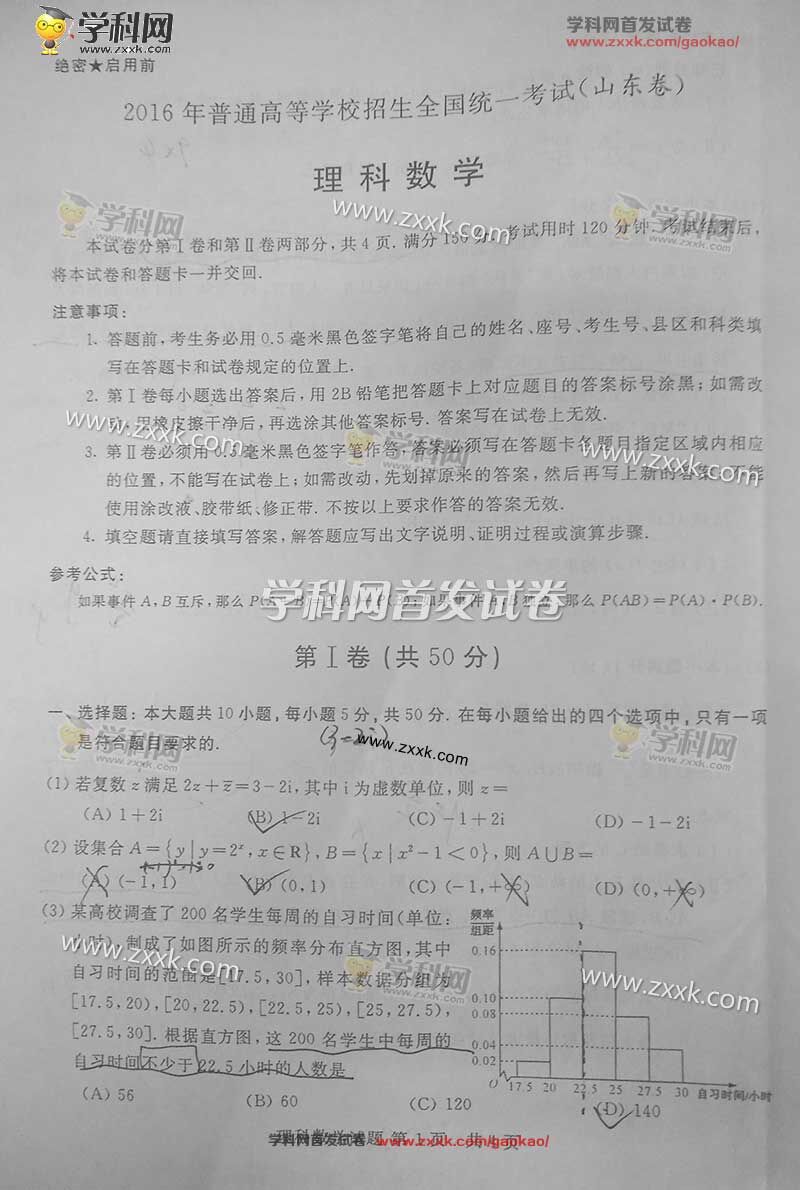 学科网
www.zxxk.com
学科网首发试卷
www.zxxk.com/gaokao/
绝密★启用前
2016 年普通高等学校招生全国统一考试(山东卷)
理科数学
学科网
www.zxxk.com
学科网
本试卷分第Ⅰ卷和第Ⅱ卷两部分,共 4 页. 满分 150 分. 考试用时 120 分钟. 考试结束后,
将本试卷和答题卡一并交回.
注意事项:
1. 答题前,考生务必用 0.5 毫米黑色签字笔将自己的姓名、座号、考生号、县区和科类填
写在答题卡和试卷规定的位置上.
2. 第Ⅰ卷每小题选出答案后,用 2B 铅笔把答题卡上对应题目的答案标号涂黑;如需改
用橡皮擦干净后,再选涂其他答案标号. 答案写在试卷上无效.
www.zxxk.com
学科网
www.zxxk.com
3. 第Ⅱ卷必须用 0.5 毫米黑色签字笔作答,答案必须写在答题卡各题目指定区域内相应
的位置,不能写在试卷上;如需改动,先划掉原来的答案,然后再写上新的答案;不能
使用涂改液、胶带纸、修正带. 不按以上要求作答的答案无效.
4. 填空题请直接填写答案,解答题应写出文字说明、证明过程或演算步骤.
参考公式:
如果事件 A,B 互斥,那么 P(A+B)=P(A)+P(B);如果事件 A,B 独立,那么 P(AB)=P(A)·P(B).
学科网首发试卷
第Ⅰ卷(共 50 分)
一、选择题:本大题共 10 小题,每小题 5 分,共 50 分. 在每小题给出的四个选项中,只有一项
是符合题目要求的.
(3-2i)
www.zxxk.com
学科网
学科网
(1) 若复数 z 满足 2z+z̅=3-2i,其中 i 为虚数单位,则 z=
(A) 1+2i (B) 1-2i (C) -1+2i (D) -1-2i
(2) 设集合 A={y|y=2ˣ,x∈R},B={x|x²-1<0},则 A∪B=
(A) (-1,1) (B) (0,1) (C) (-1,+∞) (D) (0,+∞)
(3) 某高校调查了 200 名学生每周的自习时间(单位:
小时),制成了如图所示的频率分布直方图,其中
自习时间的范围是[17.5,30],样本数据分组为
[17.5,20),[20,22.5),[22.5,25),[25,27.5),
[27.5,30]. 根据直方图,这 200 名学生中每周的
自习时间不少于 22.5 小时的人数是
www.zxxk.com
学科网
www.zxxk.com
频率
组距
0.16
0.10
0.08
0.04
0.02
O 17.5 20 22.5 25 27.5 30 自习时间/小时
(A) 56 (B) 60 (C) 120 (D) 140
理科数学试题 第 1 页 共 4 页
学科网首发试卷 www.zxxk.com/gaokao/